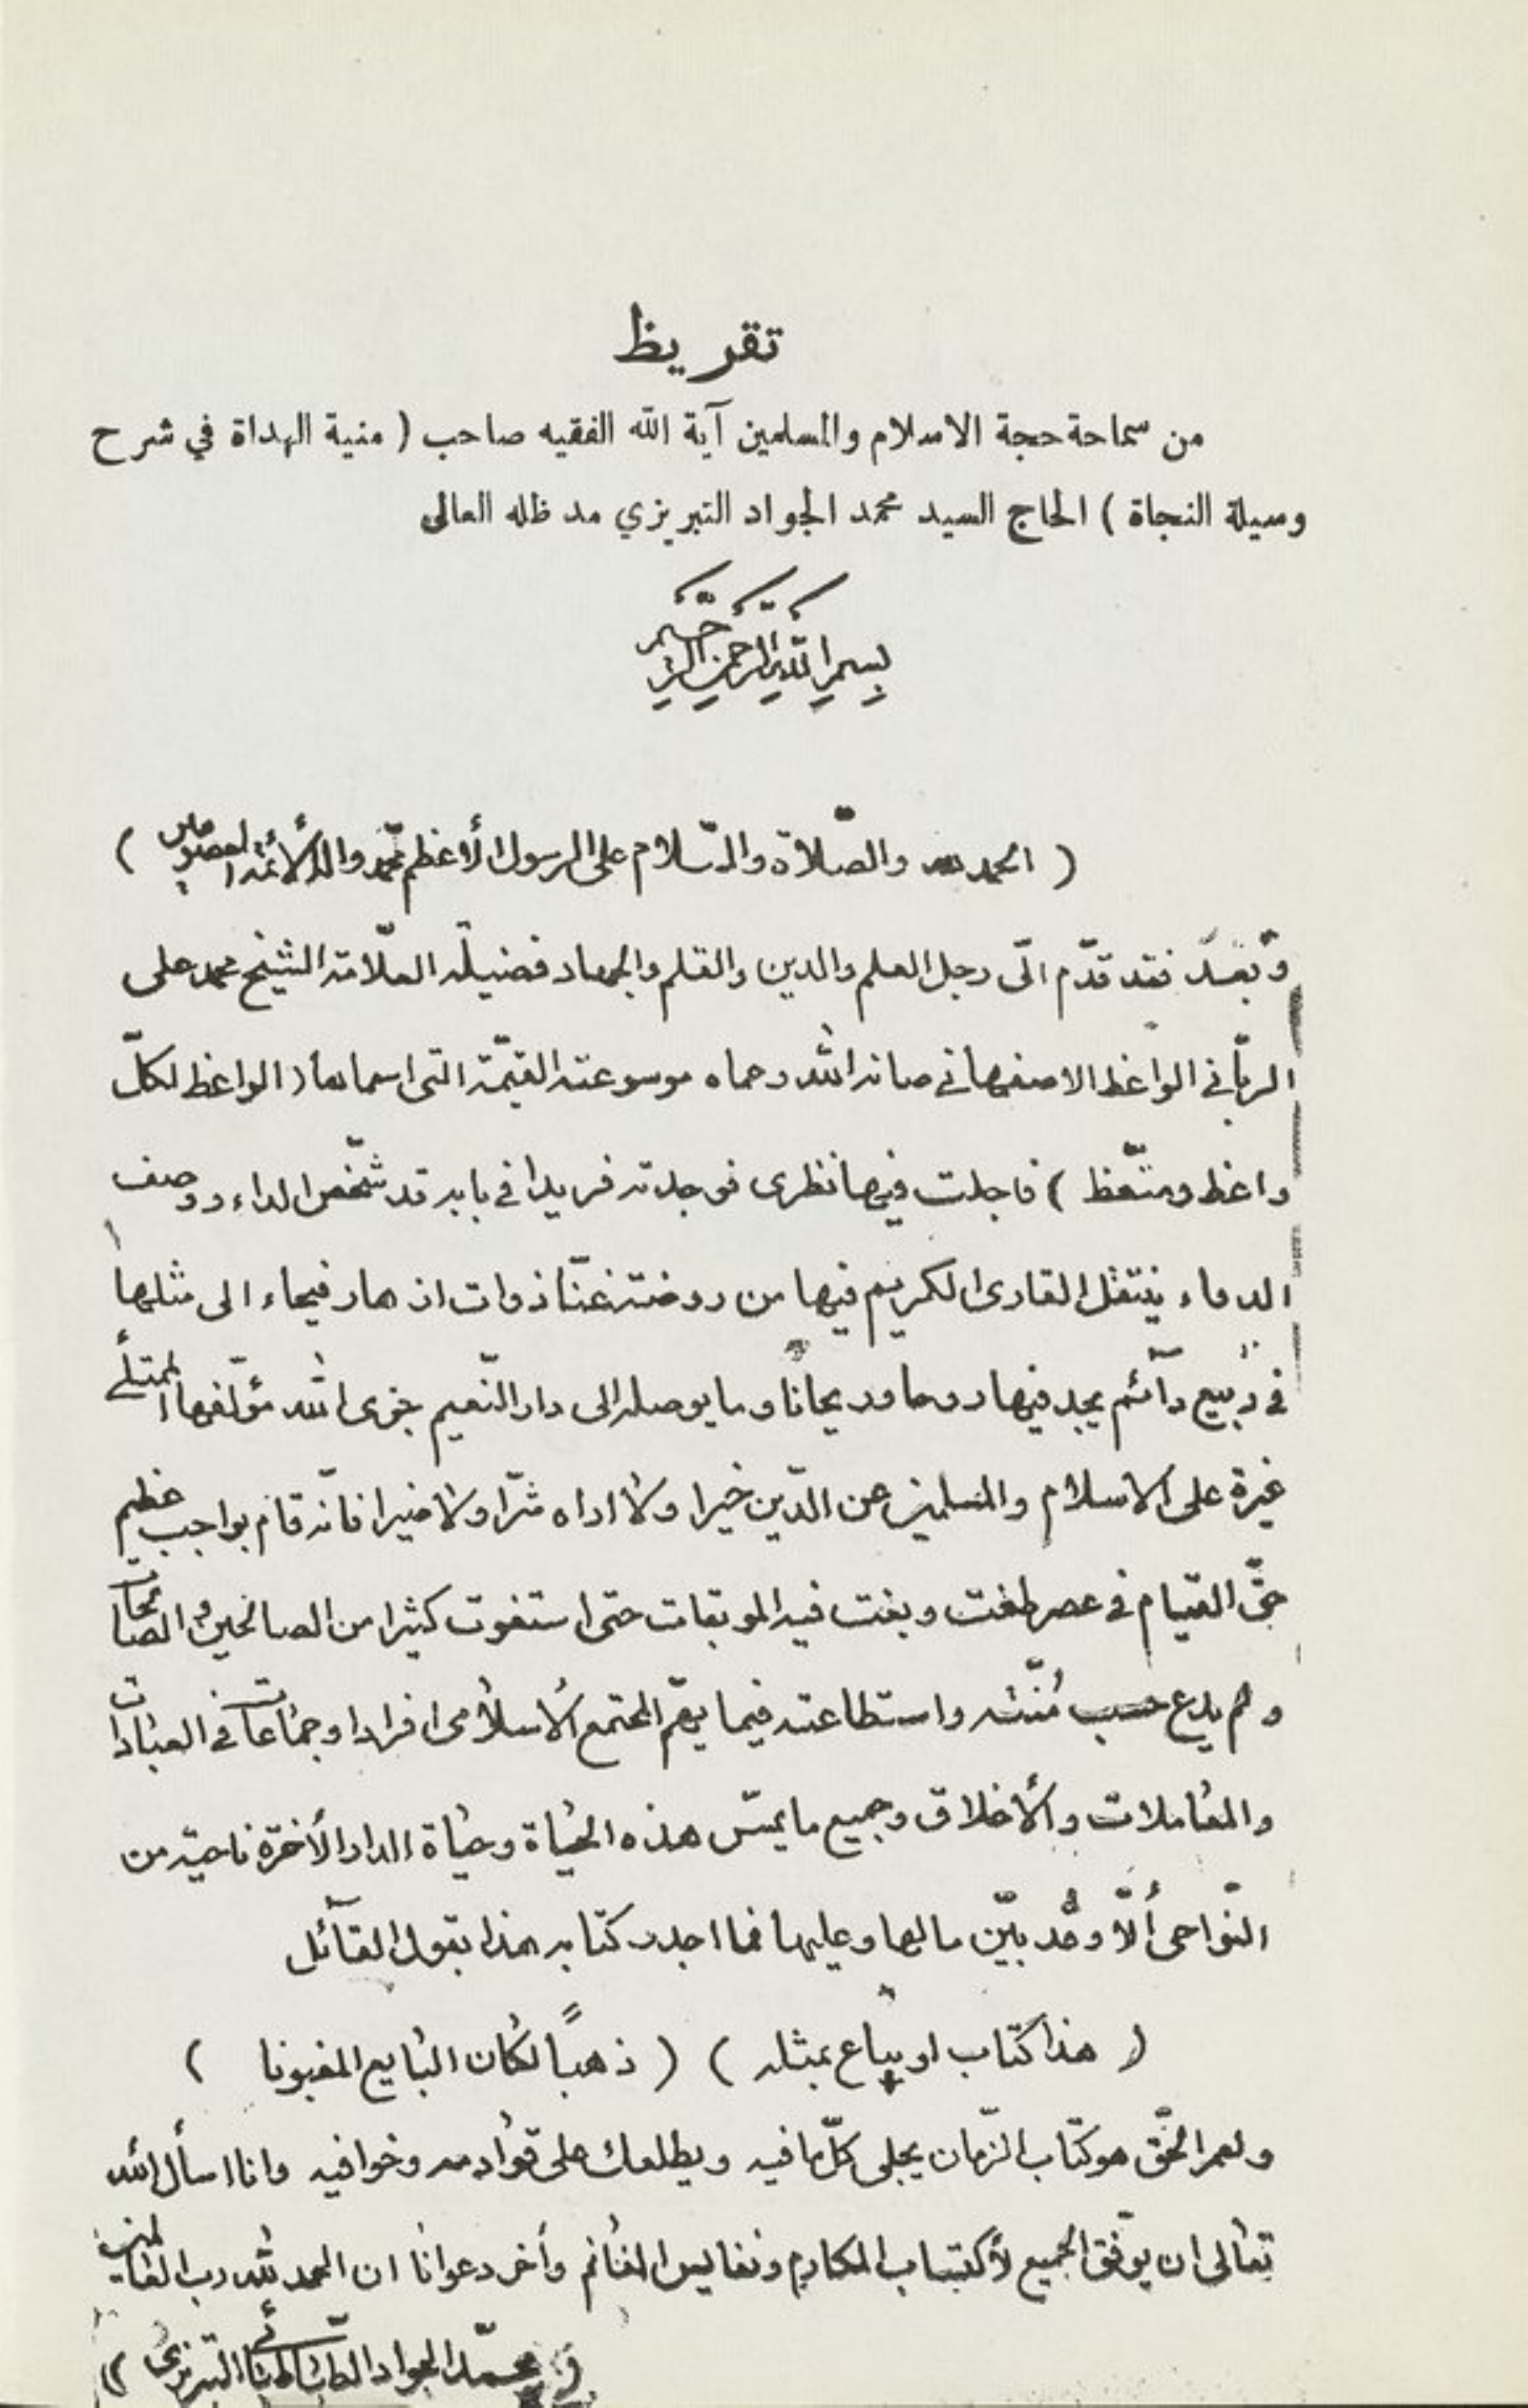 تقريظ
من سماحة حجة الاسلام والمسلمين آية الله الفقيه صاحب ( منية الهداة في شرح
وسيلة النجاة ) الحاج السيد محمد الجواد التبريزي مد ظله العالى
بسم الله الرحمن الرحيم
( الحمد لله والصّلاة والسّلام على الرسول الأعظم محمّد وآله الأئمة المعصومين )
وَبَعدُ فقد قدّم الىّ رجل العلم والدين والقلم والجهاد فضيلة العلّامة الشيخ محمد على
الربّاني الواعظ الاصفهانى صانه الله وحماه موسوعته القيّمة التى اسماها ( الواعظ لكلّ
واعظ ومتّعظ ) فاجلت فيها نظرى فوجدته فريدا في بابه قد شخّص الداء ووصف
الدواء ينتقل القارئ الكريم فيها من روضة غنّا ذوات ازهار فيحاء الى مثلها
في ربيع دآئم يجد فيها روحا وريحانا وما يوصله الى دار النّعيم جزى الله مؤلّفها الممتلئ
غيرة على الاسلام والمسلمين عن الدّين خيرا ولا اراه شرّا ولا ضيرا فانّه قام بواجب عظيم
حقّ القيام في عصر طغت وبغت فيه الموبقات حتى استغوت كثيرا من الصالحين و الصالحات
ولم يدع حسب مُنّته واستطاعته فيما يهمّ المجتمع الاسلامى افرادا وجماعات في العبادات
والمعاملات والأخلاق وجميع ما يمسّ هذه الحياة وحياة الدار الأخرة ناحية من
النّواحى ألّا وقد بيّن مالها وعليها فما اجدر كتابه هذا بقول القآئل
( هذا كتاب لو يباع بمثله ) ( ذهباً لكان البايع المغبونا )
ولعمر الحقّ هو كتاب الزّمان يجلى كلّ ما فيه ويطلعك على قوادمه وخوافيه وانا اسأل الله
تعالى ان يوفّق الجميع لأكتساب المكارم ونفايس المغانم وأخر دعوانا ان الحمد لله رب العالمين
محمّد الجواد الطباطبائى التبريزى )